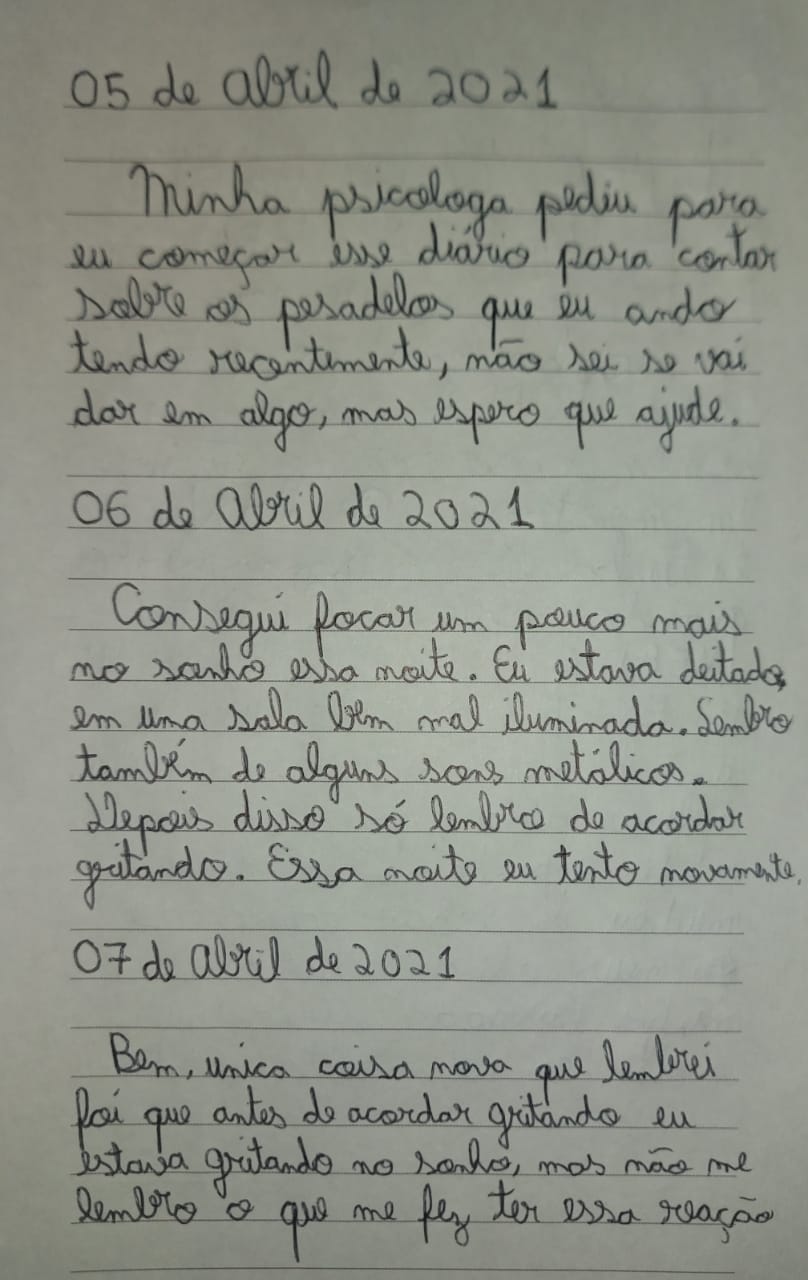 05 de abril de 2021
Minha psicologa pediu para
eu começar esse diário para contar
sobre os pesadelos que eu ando
tendo recentemente, não sei se vai
dar em algo, mas espero que ajude.
06 de abril de 2021
Consegui focar um pouco mais
no sonho essa noite. Eu estava deitado,
em uma sala bem mal iluminada. Lembro
também de alguns sons metálicos.
Depois disso só lembro de acordar
gritando. Essa noite eu tento novamente.
07 de abril de 2021
Bem, unica coisa nova que lembrei
foi que antes de acordar gritando eu
estava gritando no sonho, mas não me
lembro o que me fez ter essa reação